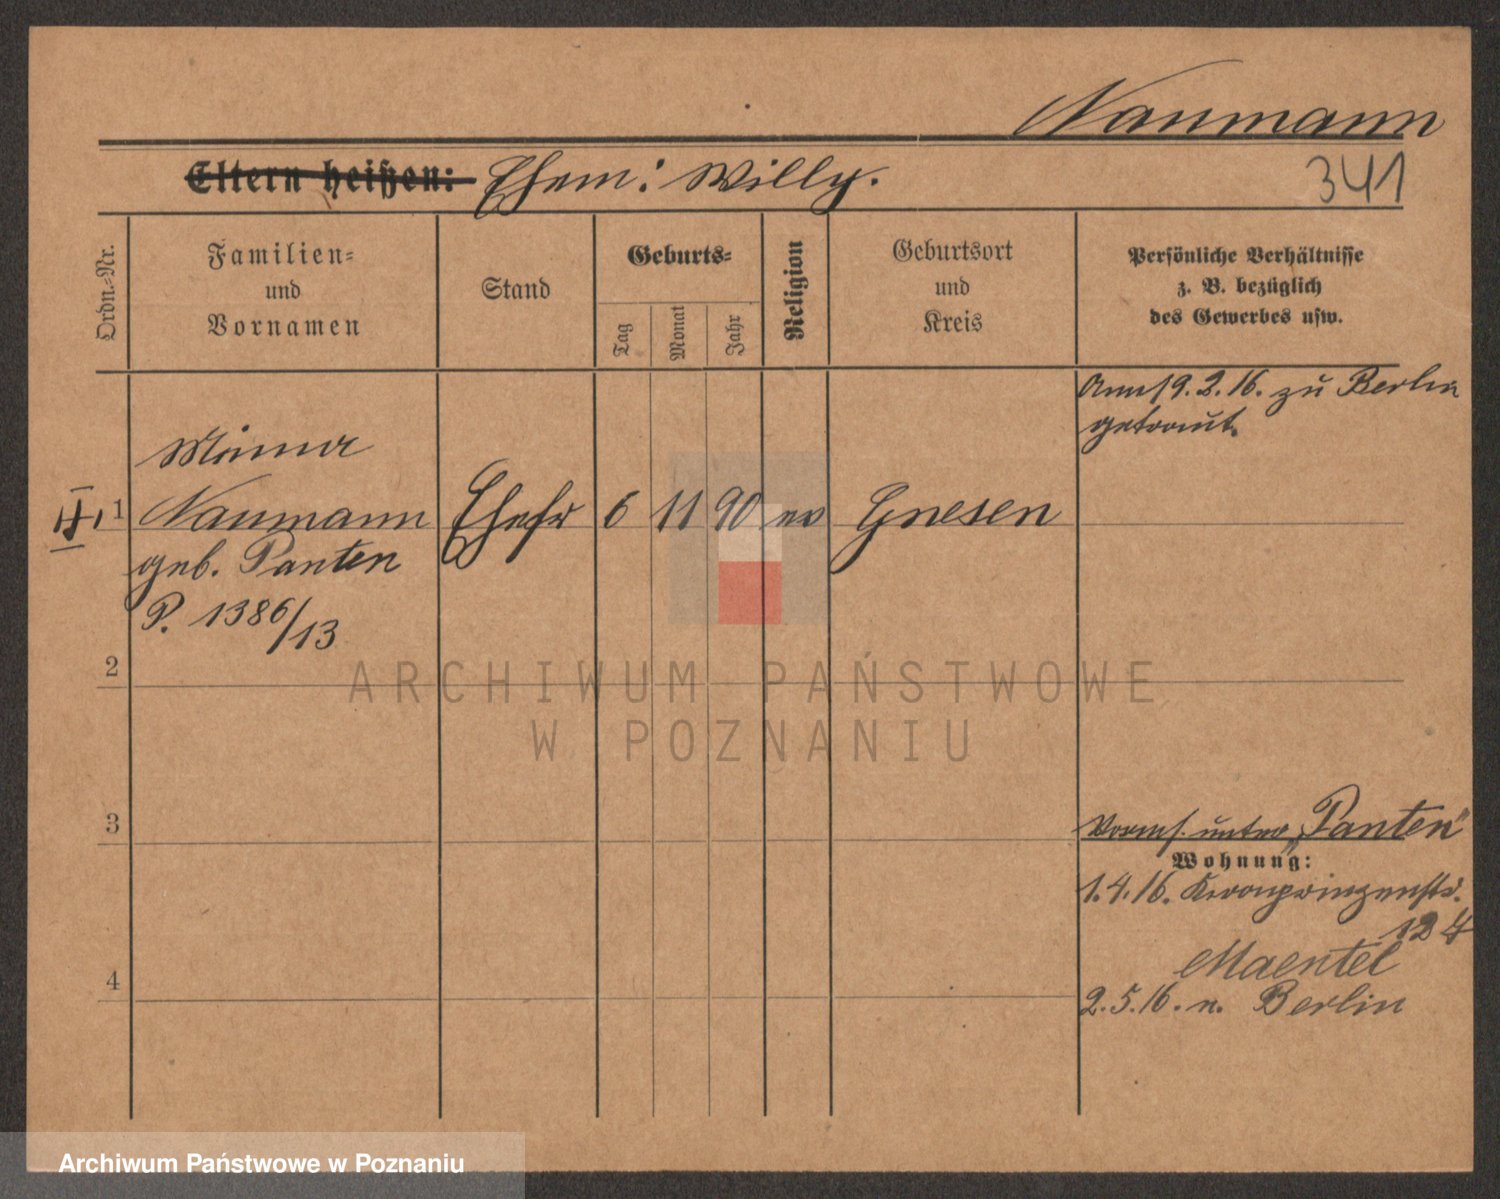 Naumann
Eltern heißen: Ehem: Willy.
341
Ordn.-Nr.
Familien-
und
Vornamen
Stand
Geburts-
Tag
Monat
Jahr
Religion
Geburtsort
und
Kreis
Persönliche Verhältnisse
z. B. bezüglich
des Gewerbes usw.
Am 19.2.16. zu Berlin
getraut.
Minna
1 Naumann Ehefr 6 11 90 ev Gnesen
geb. Panten
P. 1386/13
2
3
unter „Panten"
Wohnung:
1.4.16. Kronprinzenstr.
Maentel
4
2.5.16. n. Berlin
ARCHIWUM PAŃSTWOWE
W POZNANIU
Archiwum Państwowe w Poznaniu